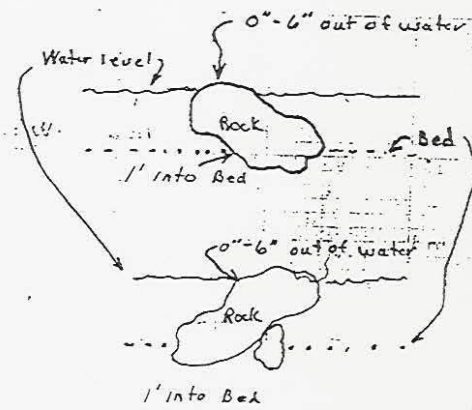 0"-6" out of water
Water level
Rock
Bed
1' into Bed
0"-6" out of water
Rock
1' into Bed